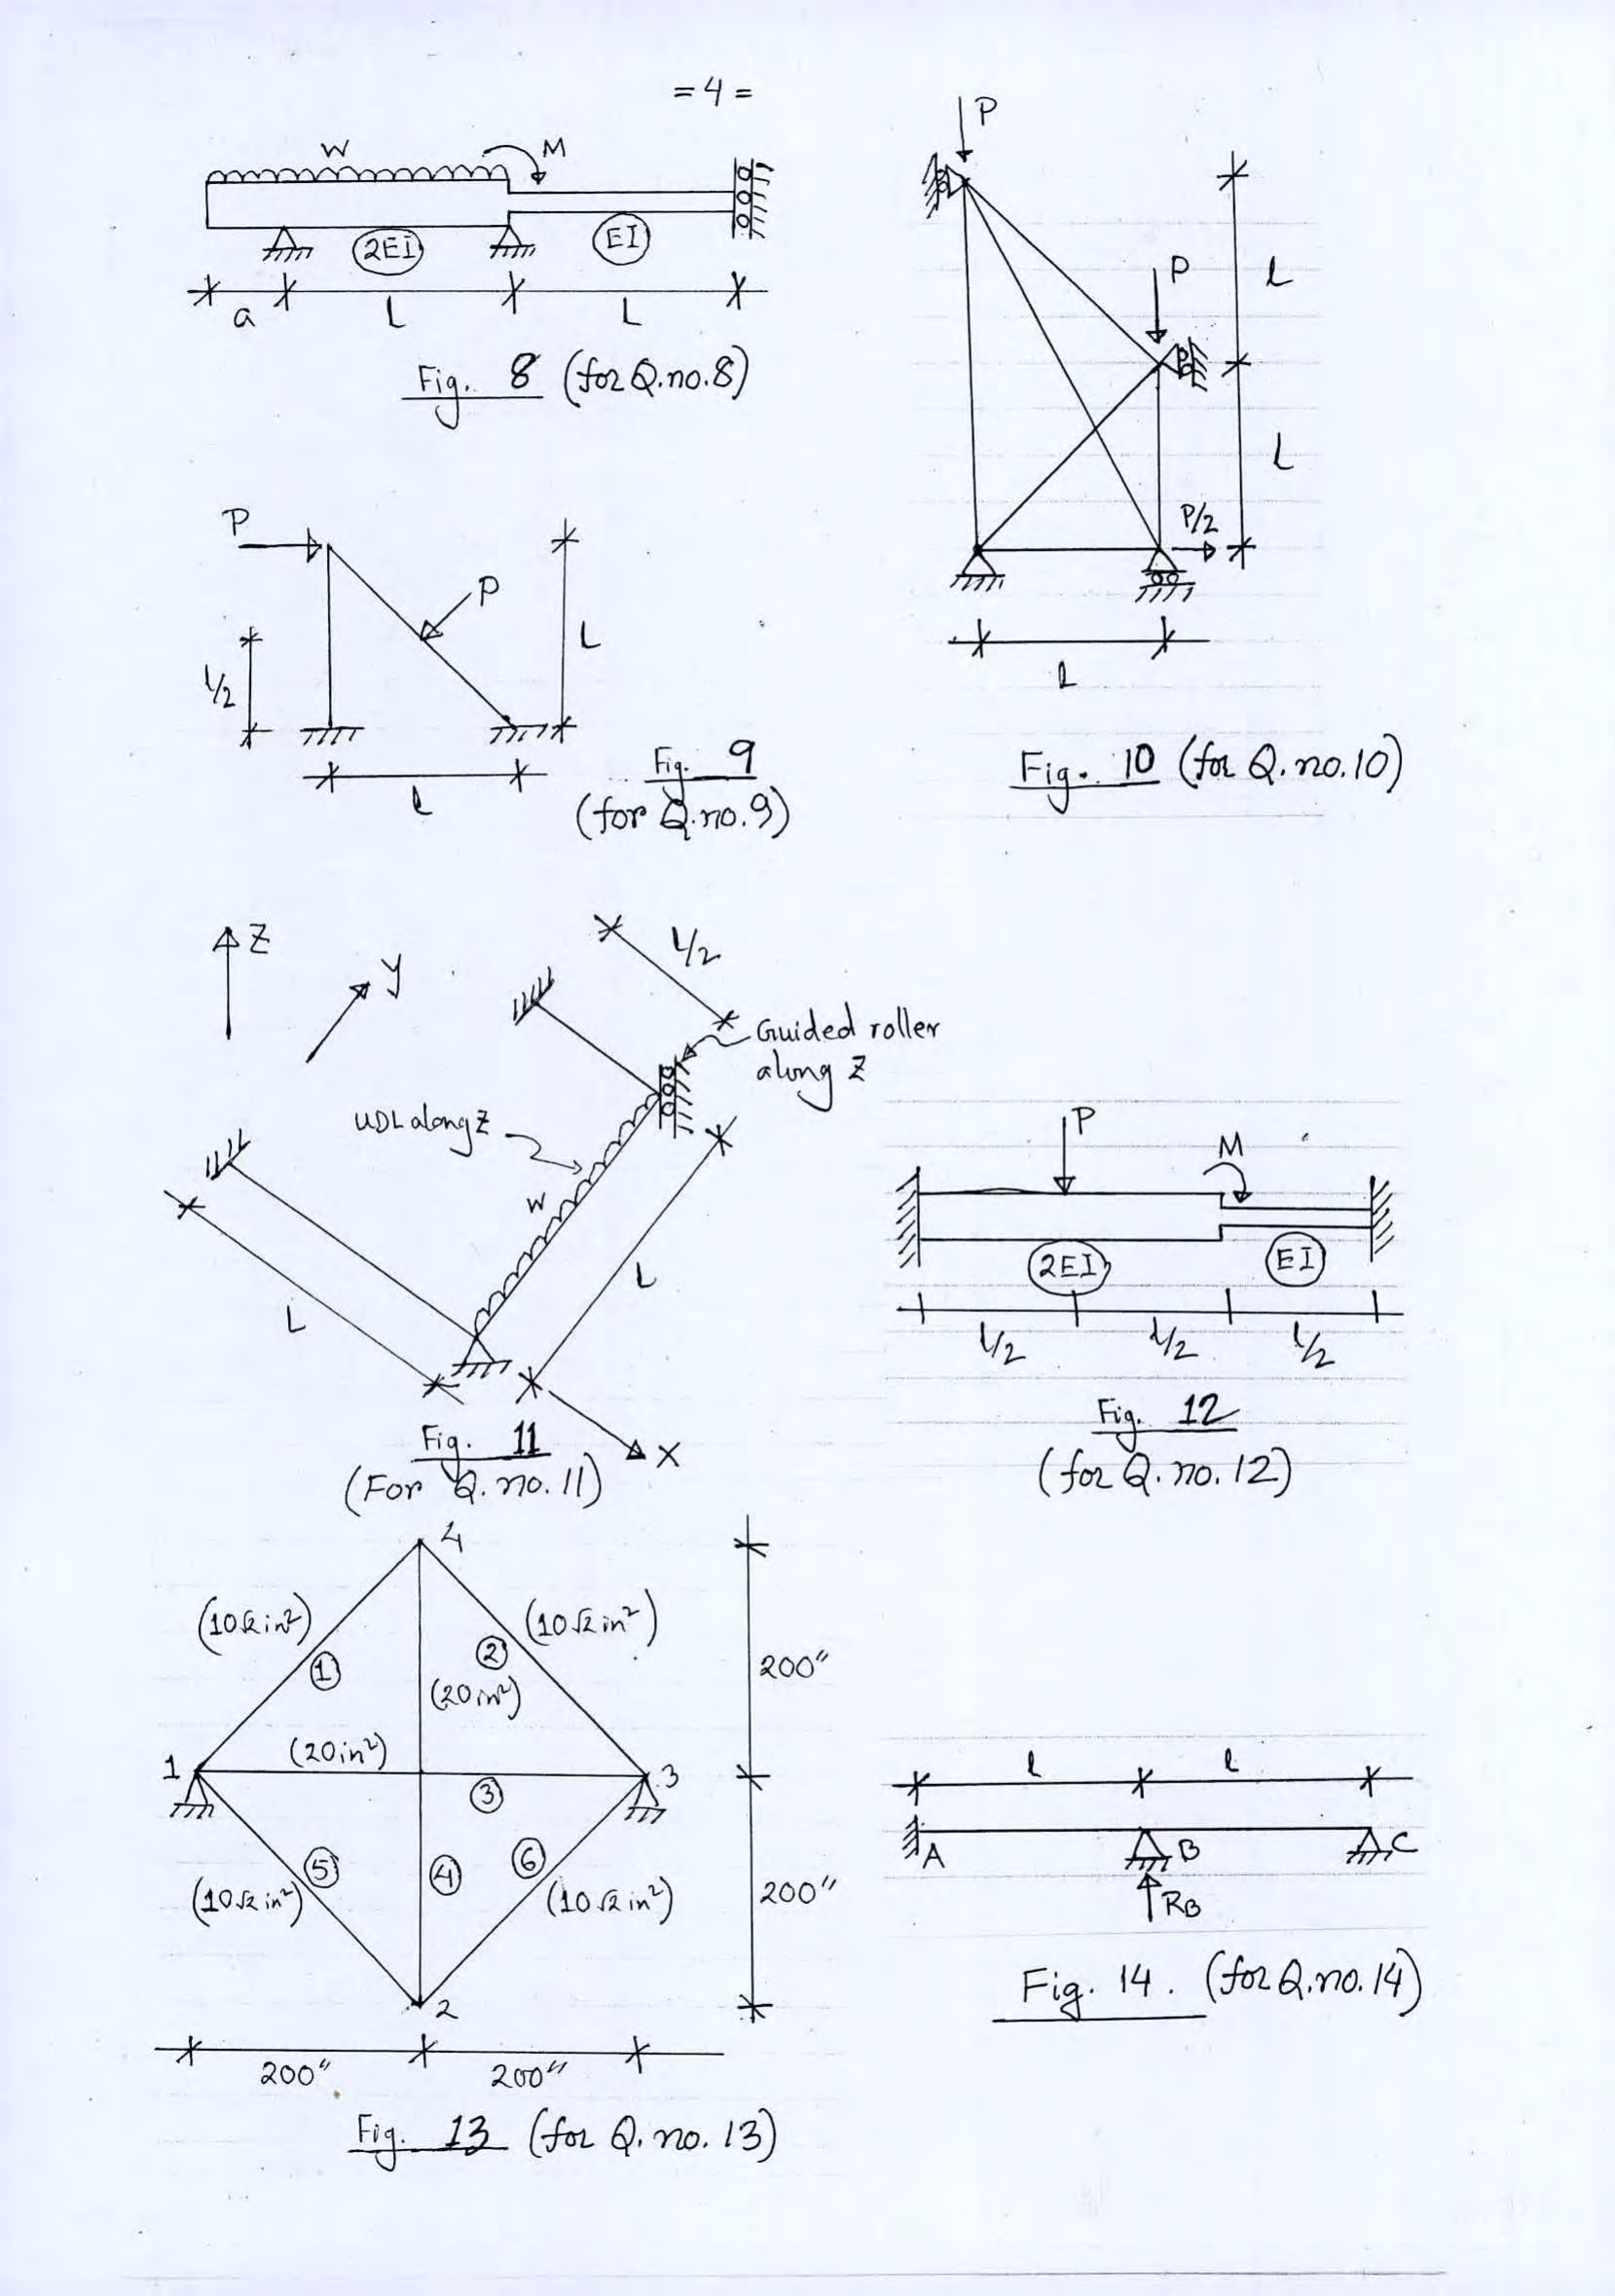 = 4 =
W
M
2EI
EI
a
L
L
Fig. 8 (for Q.no.8)
P
P
L
L/2
L
Fig. 9
(for Q.no.9)
P
P
L
L
P/2
L
Fig. 10 (for Q.no.10)
Z
y
L/2
Guided roller
along Z
UDL along Z
W
L
L
X
Fig. 11
(For Q.no.11)
P
M
2EI
EI
L/2
L/2
L/2
Fig. 12
(for Q.no.12)
4
(10√2 in²)
(10√2 in²)
1
2
(20in²)
200"
(20in²)
1
3
3
5
4
6
(10√2 in²)
(10√2 in²)
200"
2
200"
200"
Fig. 13 (for Q.no.13)
l
l
A
B
C
RB
Fig. 14. (for Q.no.14)